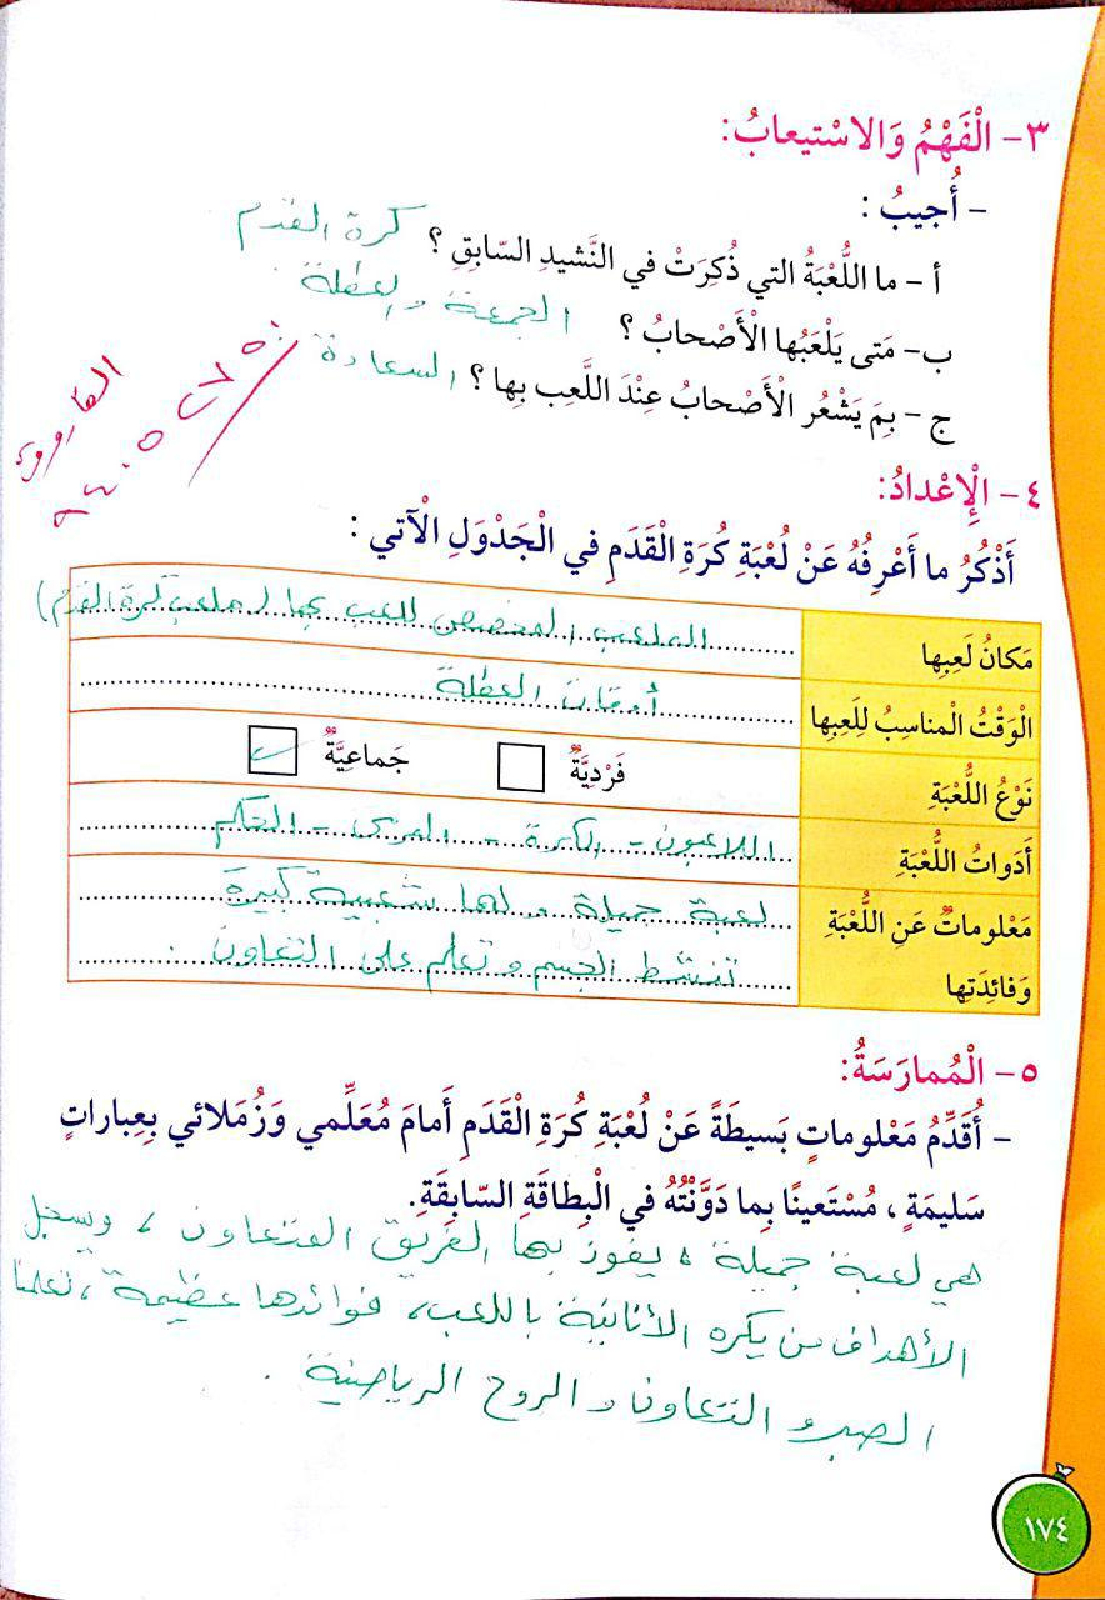 ٣- الْفَهْمُ وَالاسْتيعابُ:
- أُجيبُ :
أ - ما اللُّعْبَةُ التي ذُكِرَتْ في النَّشيدِ السّابِقِ ؟ كرة القدم
ب- مَتى يَلْعَبُها الْأَصْحابُ ؟ الجمعة والعطلة
ج - بِمَ يَشْعُر الْأَصْحابُ عِنْدَ اللَّعِبِ بِها ؟ السعادة
٤ - الْإِعْدادُ:
أَذْكُرُ ما أَعْرِفُهُ عَنْ لُعْبَةِ كُرَةِ الْقَدَمِ في الْجَدْوَلِ الْآتي :
مَكانُ لَعِبِها الملعب المخصص للعب بها (ملاعب كرة القدم)
الْوَقْتُ الْمناسِبُ لِلَعِبِها أوقات العطلة
نَوْعُ اللُّعْبَةِ فَرْدِيَّةٌ جَماعِيَّةٌ
أَدَواتُ اللُّعْبَةِ اللاعبون - الكرة - المرمى - الحكم
مَعْلوماتٌ عَنِ اللُّعْبَةِ لعبة جميلة ولها شعبية كبيرة
وَفائِدَتِها تنشط الجسم وتعلم على التعاون .
٥- الْمُمارَسَةُ:
- أُقَدِّمُ مَعْلوماتٍ بَسيطَةً عَنْ لُعْبَةِ كُرَةِ الْقَدَمِ أَمامَ مُعَلِّمي وَزُمَلائي بِعِباراتٍ
سَليمَةٍ ، مُسْتَعينًا بِما دَوَّنْتُهُ في الْبِطاقَةِ السّابِقَةِ.
هي لعبة جميلة ، يفوز بها الفريق المتعاون ، ويسجل
الأهداف من يكره الأنانية باللعب، فوائدها عظيمة ، تعلمنا
الصبر و التعاون و الروح الرياضية .
١٧٤